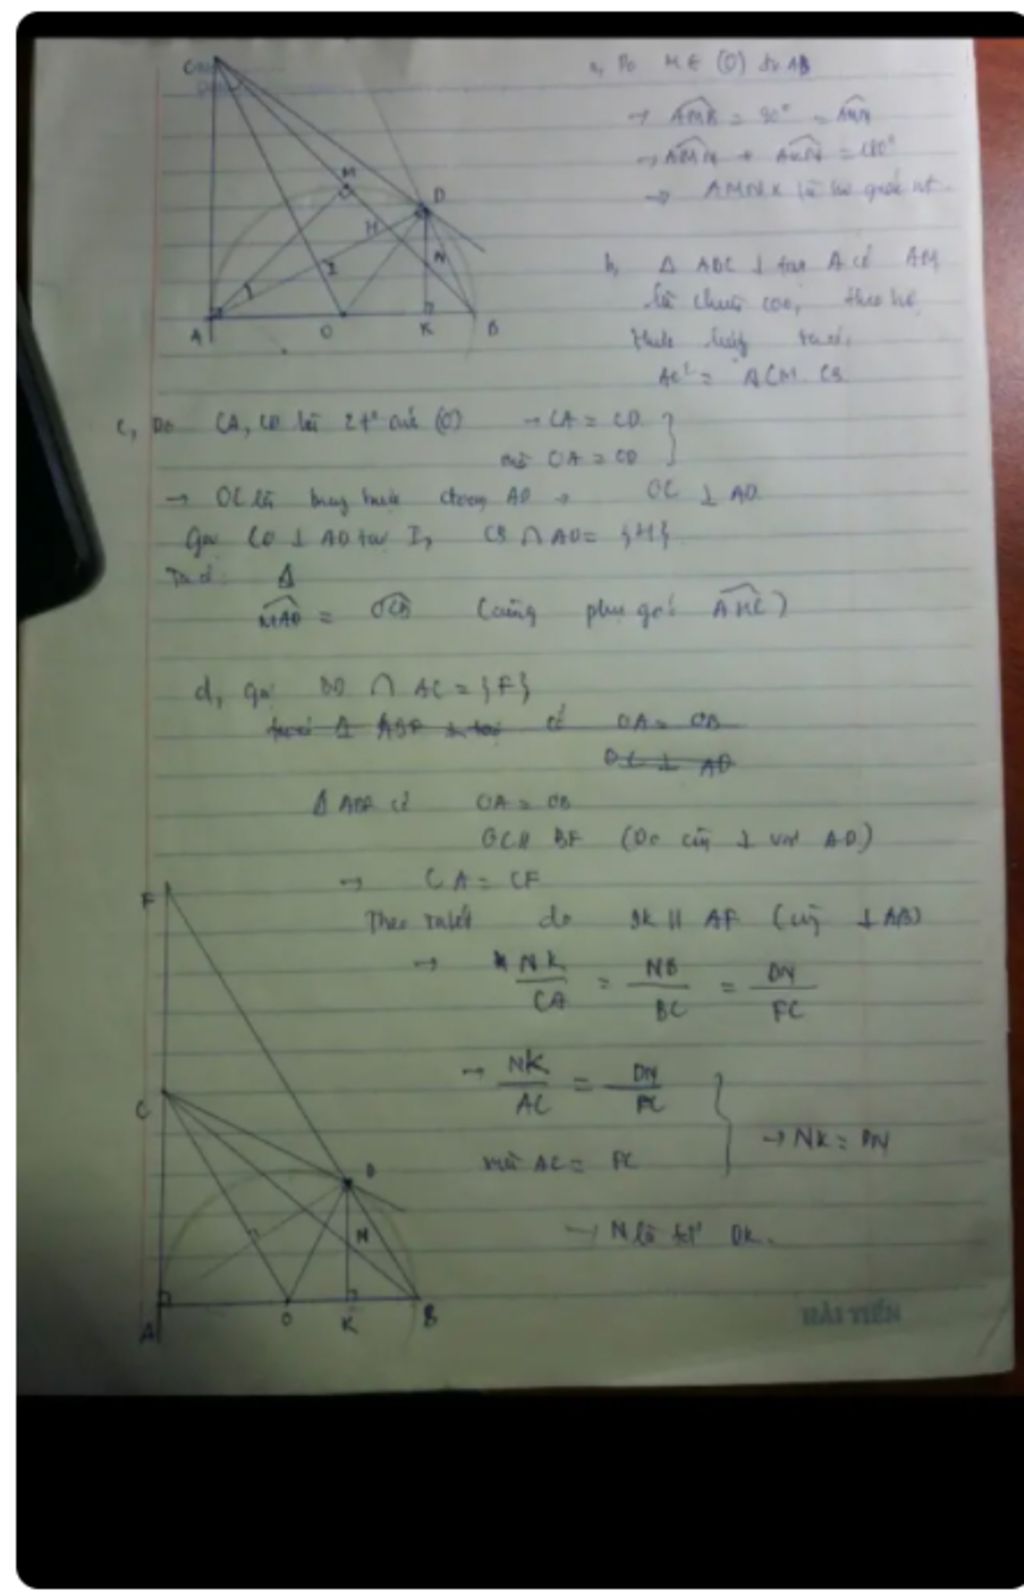 a, Do M ∈ (O) đk AB
→ AMB = 90° = AKN
→ AMN + AKN = 180°
→ AMNK là tứ giác nt.
b, Δ ABC ⊥ tại A có AM
là đường cao, theo hệ
thức lượng ta có,
AC² = CM. CB
c, Do CA, CD là 2 t² của (O) → CA = CD
mà OA = OD
→ OC là trung trực đoạn AD → OC ⊥ AD.
Gọi CO ⊥ AD tại I, CB ∩ AD = {H}
Ta có: Δ
MAD = OCB (cùng phụ góc AHC)
d, gọi BD ∩ AC = {F}
có OA = OB
OC ⊥ AD
Δ ABF có OA = OB
OC // BF (Do cùng ⊥ với AD)
→ CA = CF
Theo Talét do DK // AF (cùng ⊥ AB)
→ NK/CA = NB/BC = DN/FC
→ NK/AC = DN/FC
mà AC = FC → NK = DN
→ N là tđ DK.
C
M
D
H
N
I
A O K B
F
C
D
N
A O K B
HẢI TIẾN